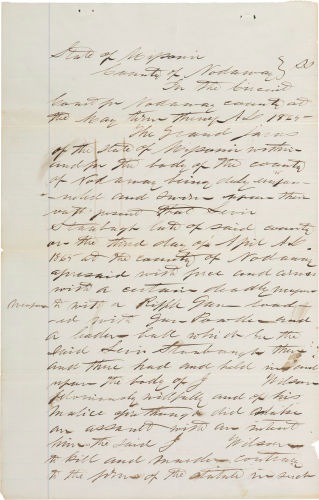 State of Missouri
County of Nodaway } SS
In the Circuit
Court for Nodaway county at
the May term thereof A.D. 1865
The Grand Jurors
of the State of Missouri within
and for the body of the county
of Nodaway being duly empan-
neled and Sworn upon their
oath present that Levi
Stanbaugh late of said county
on the third day of April A.D.
1865 at the county of Nodaway
aforesaid with force and arms
with a certain deadly
weapon
to wit a Riffle Gun load-
ed with Gun Powder and
a leaden ball which he the
said Levi Stanbaugh then
and there had and held in and
upon the body of J Wilson
feloniously willfully and of his
Malice afore thought did make
an assault with an intent
him the said J Wilson
to kill and murder contrary
to the form of the statute in such